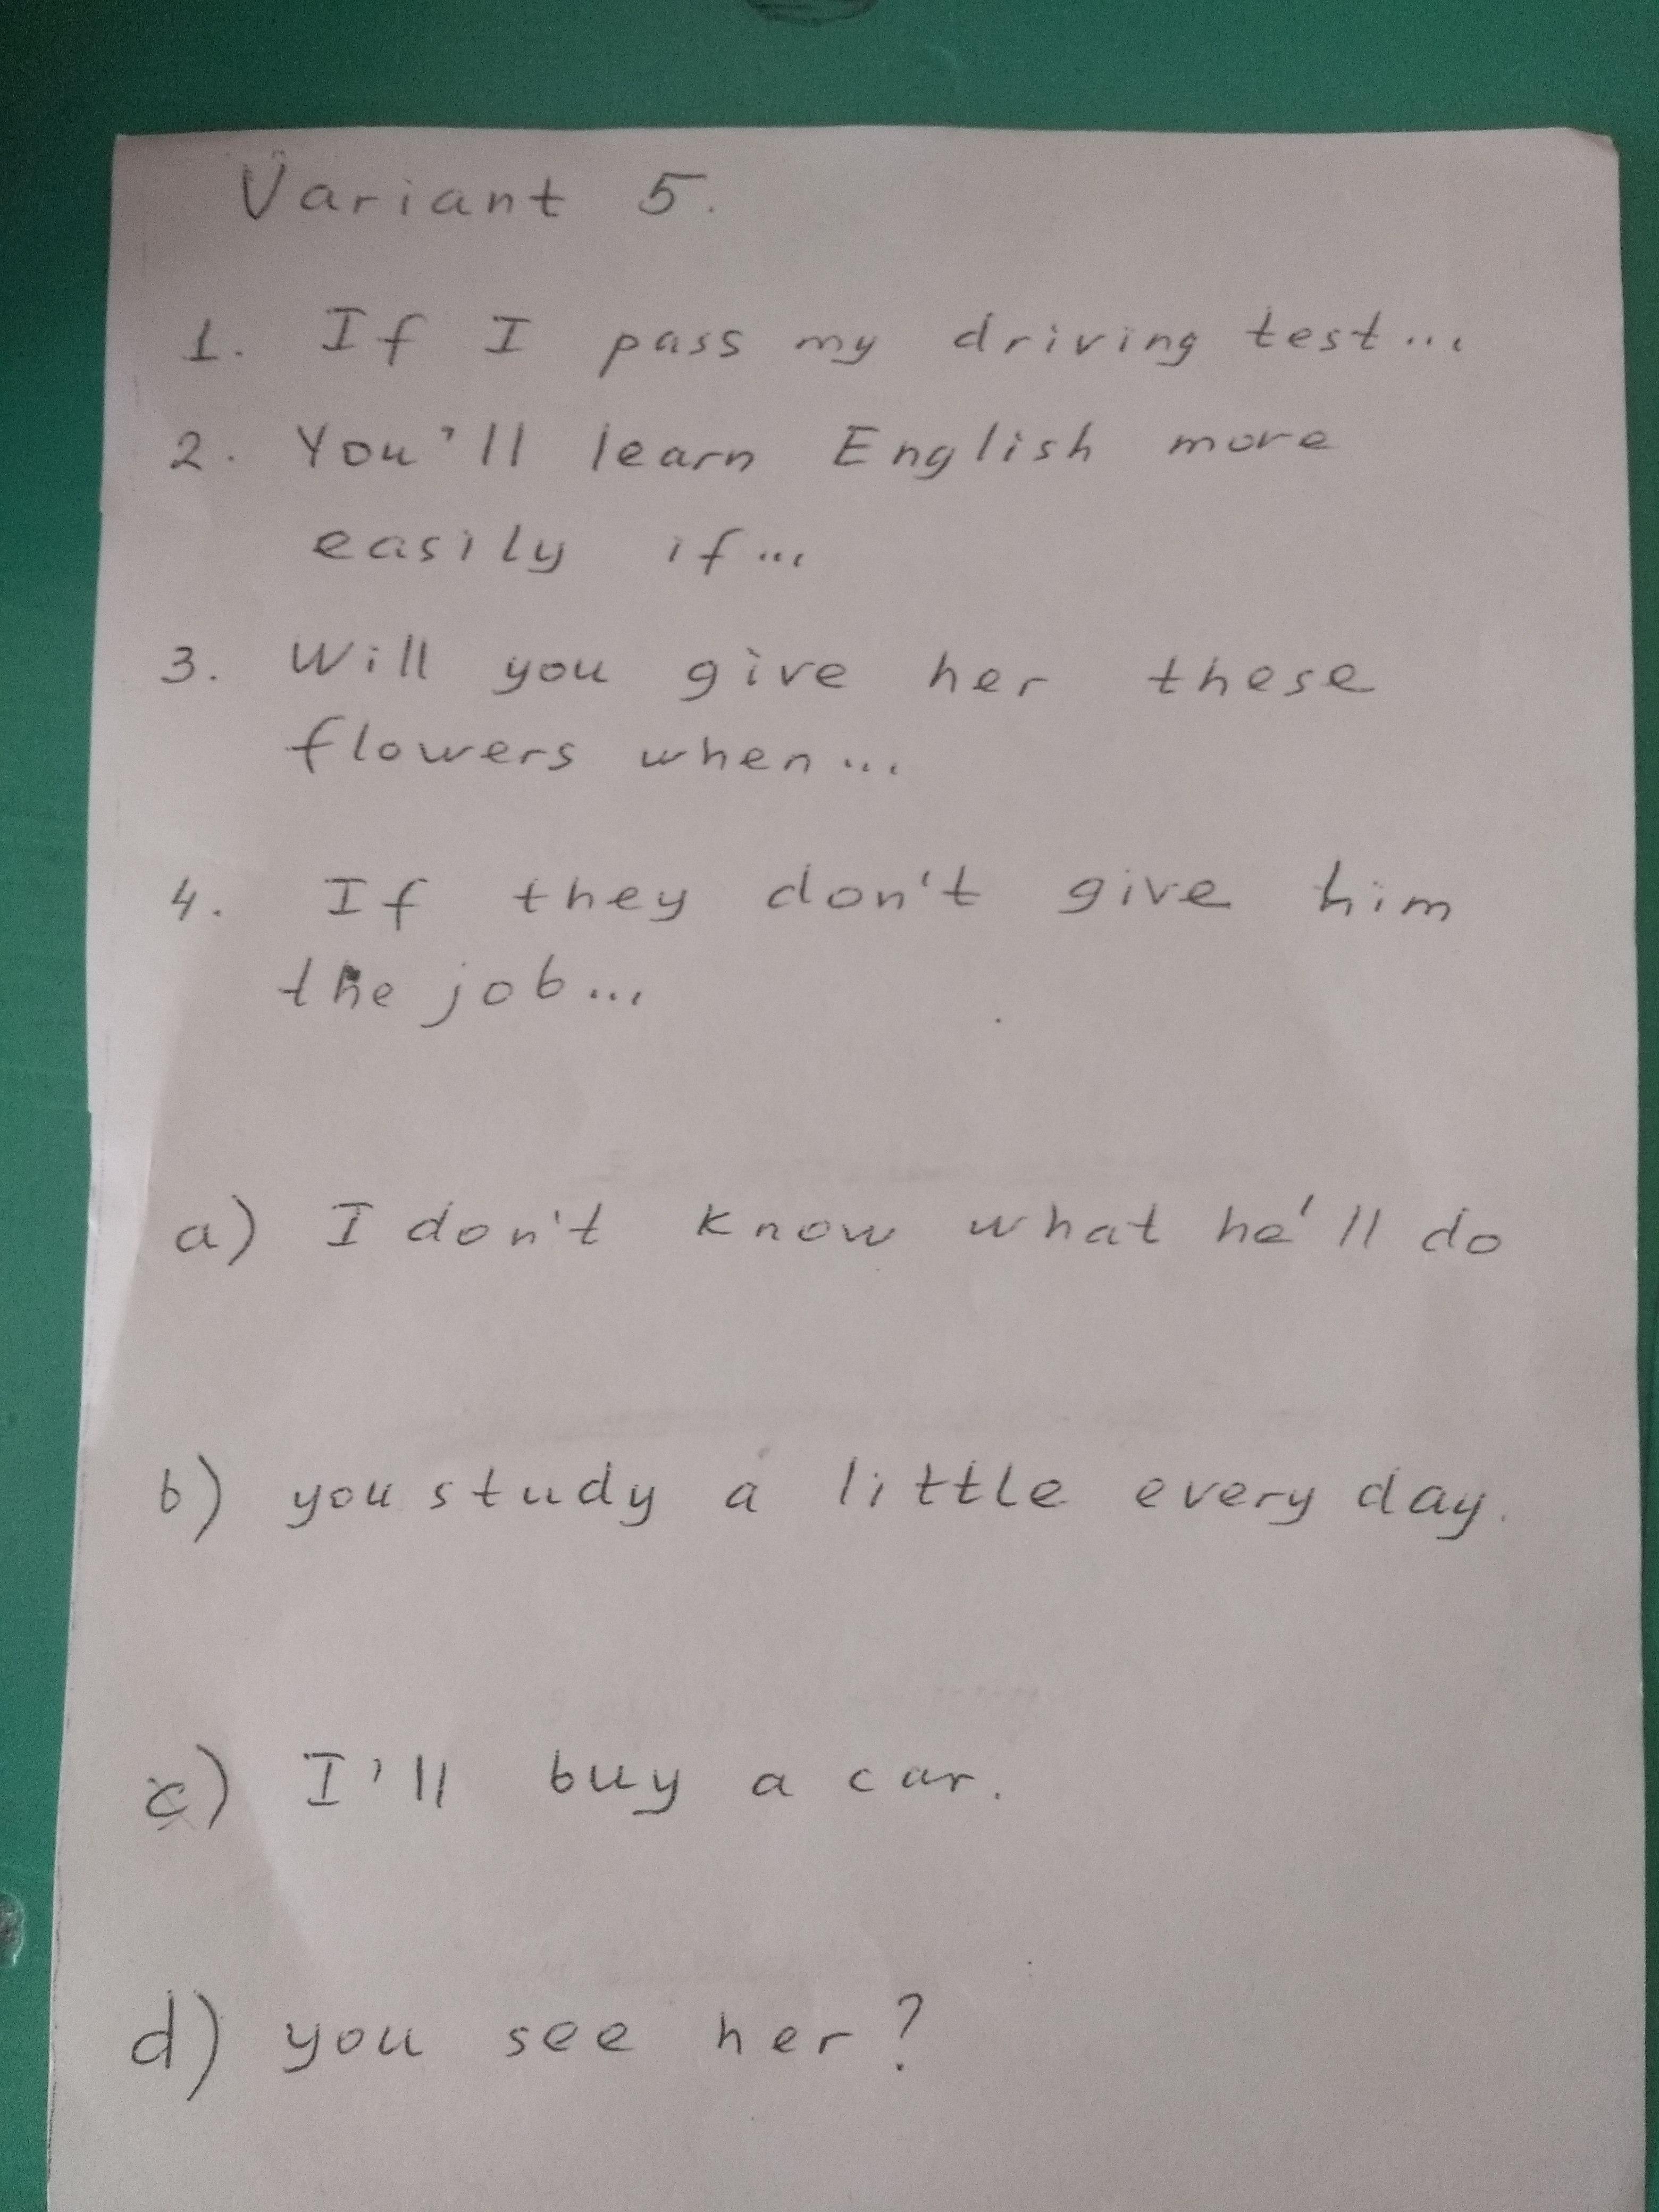 Variant 5.
1. If I pass my driving test...
2. You'll learn English more
easily if...
3. Will you give her these
flowers when...
4. If they don't give him
the job...
a) I don't know what he'll do
b) you study a little every day.
c) I'll buy a car.
d) you see her?